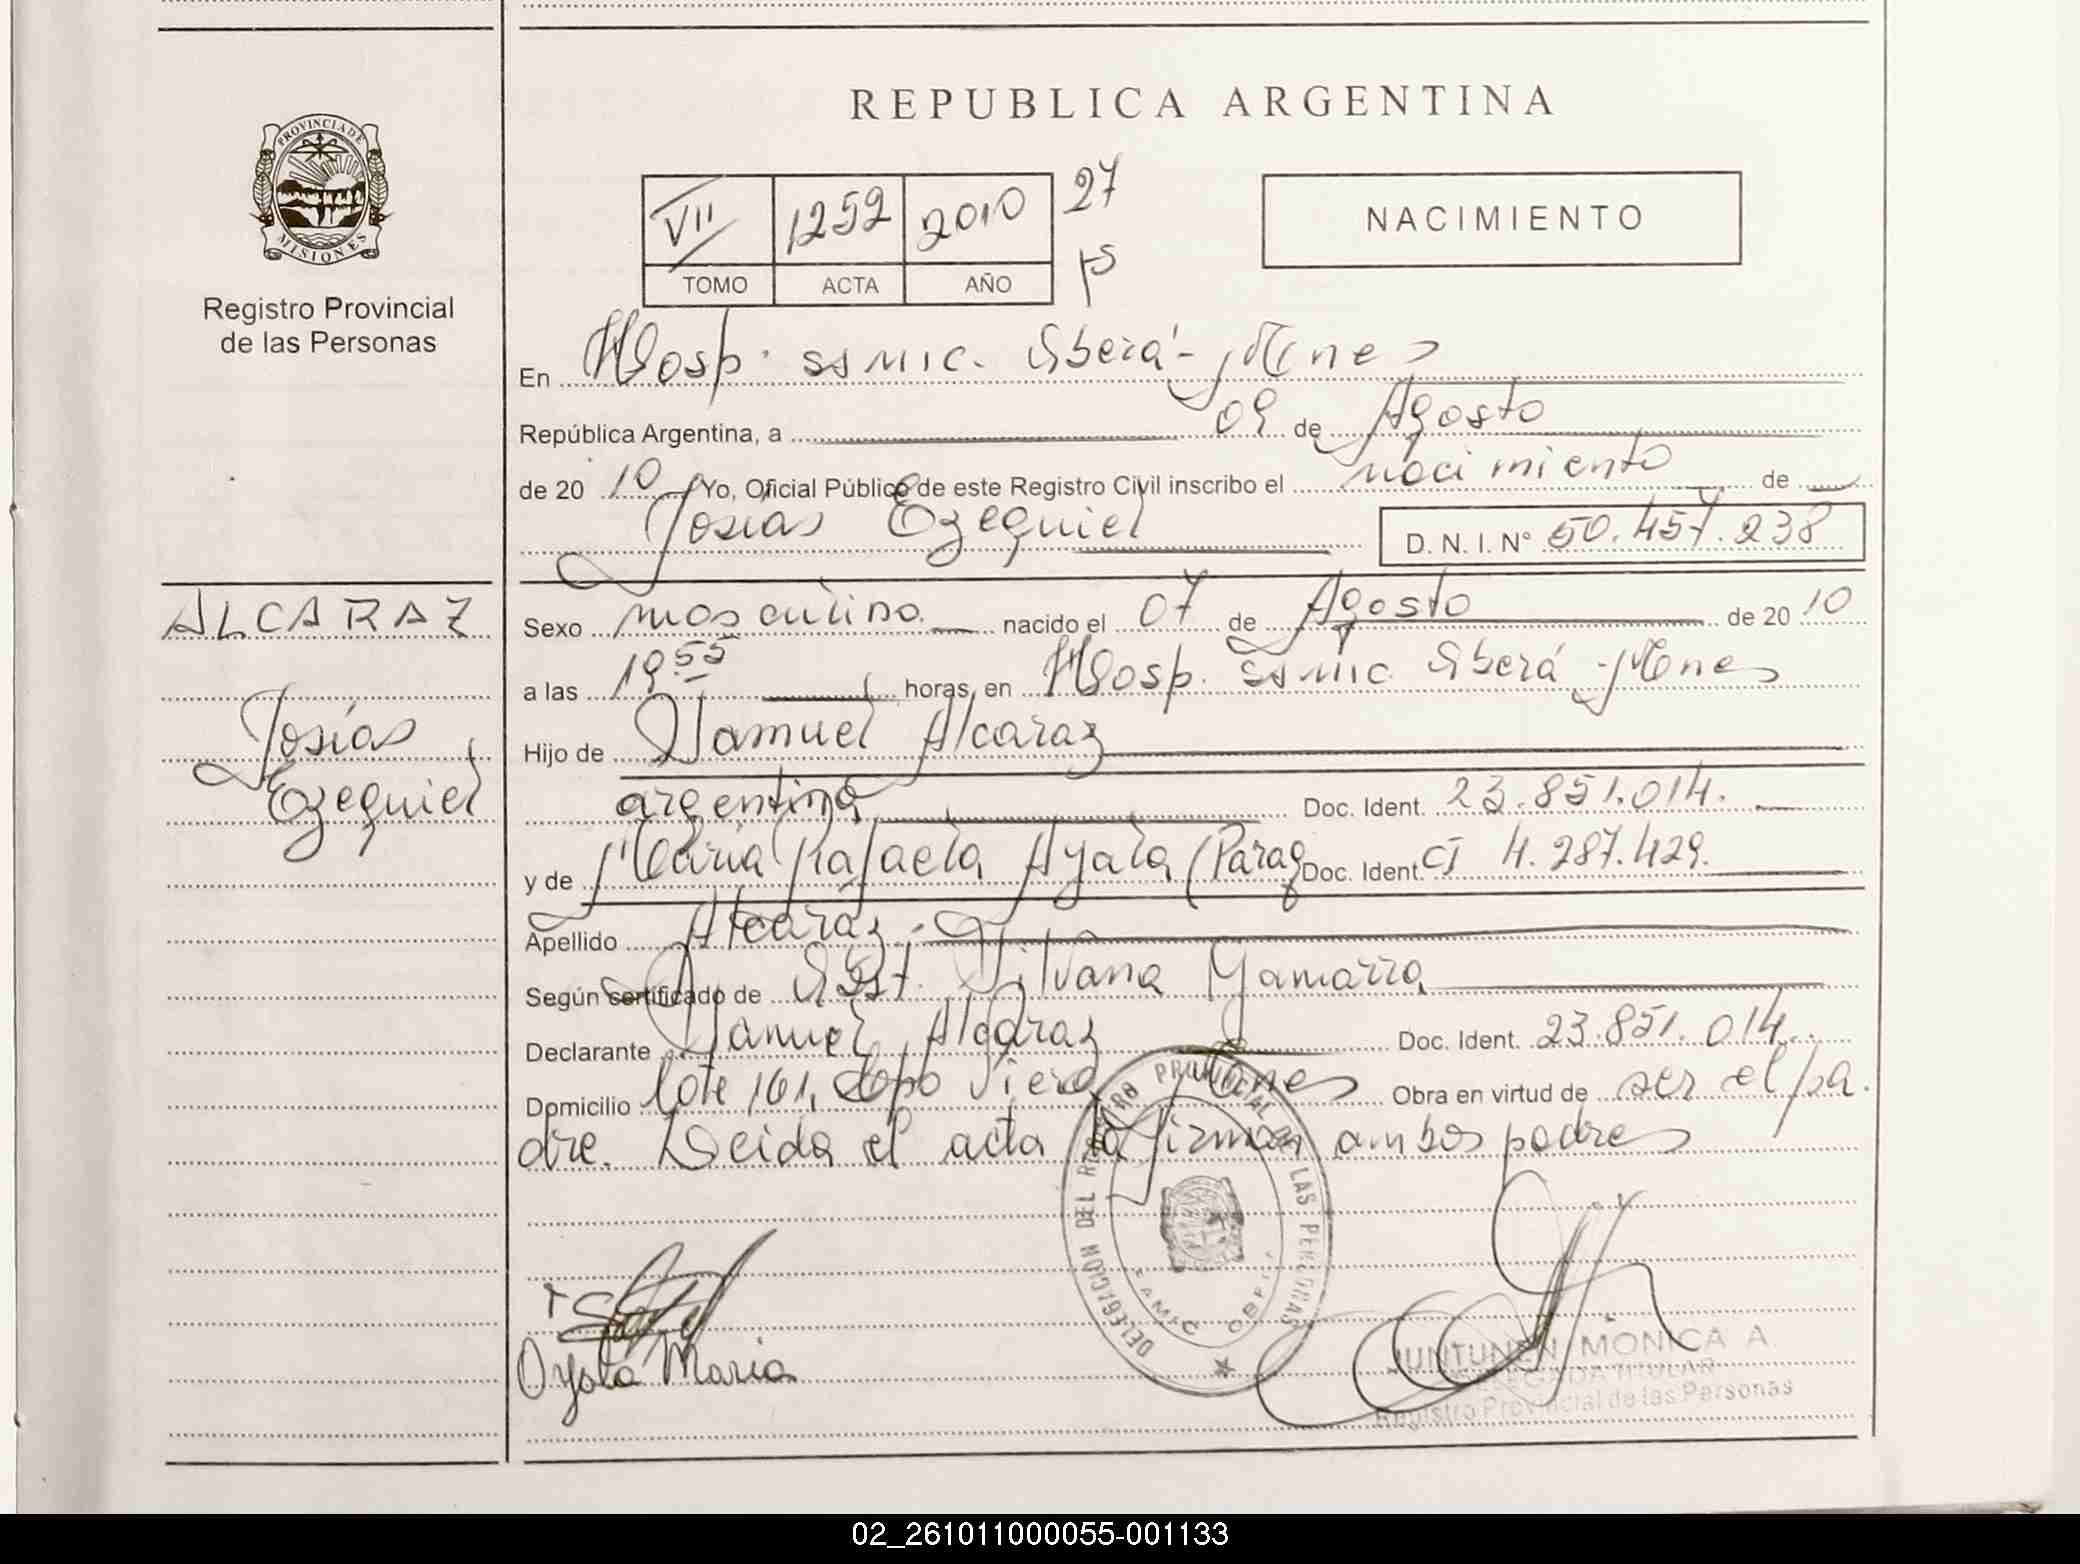 REPUBLICA ARGENTINA
PROVINCIA DE
MISIONES
Registro Provincial
de las Personas
VII 1252 2010 27
TOMO ACTA AÑO
NACIMIENTO
En Hosp. SAMIC. Oberá - Mnes
República Argentina, a 09 de Agosto
de 20 10 Yo, Oficial Público de este Registro Civil inscribo el nacimiento de
Josías Ezequiel D. N. I. N° 50.457.238
ALCARAZ
Josías
Ezequiel
Sexo masculino. nacido el 07 de Agosto de 20 10
a las 19 55 horas, en Hosp. SAMIC. Oberá - Mnes
Hijo de Samuel Alcaraz
argentino Doc. Ident. 23.851.014.
y de Maria Rafaela Ayala (Parag Doc. Ident. CI 4.287.429.
Apellido Alcaraz.
Según certificado de Obst. Silvana Gamarra
Declarante Samuel Alcaraz Doc. Ident. 23.851.014.
Domicilio Lote 101, Cpo Viera Mnes Obra en virtud de ser el pa
dre. Leida el acta la firman ambos padres
DELEGACION DEL REGISTRO PROVINCIAL DE LAS PERSONAS
Ayala Maria
JUNTUNEN MONICA A
DELEGADA TITULAR
Registro Provincial de las Personas
02_261011000055-001133